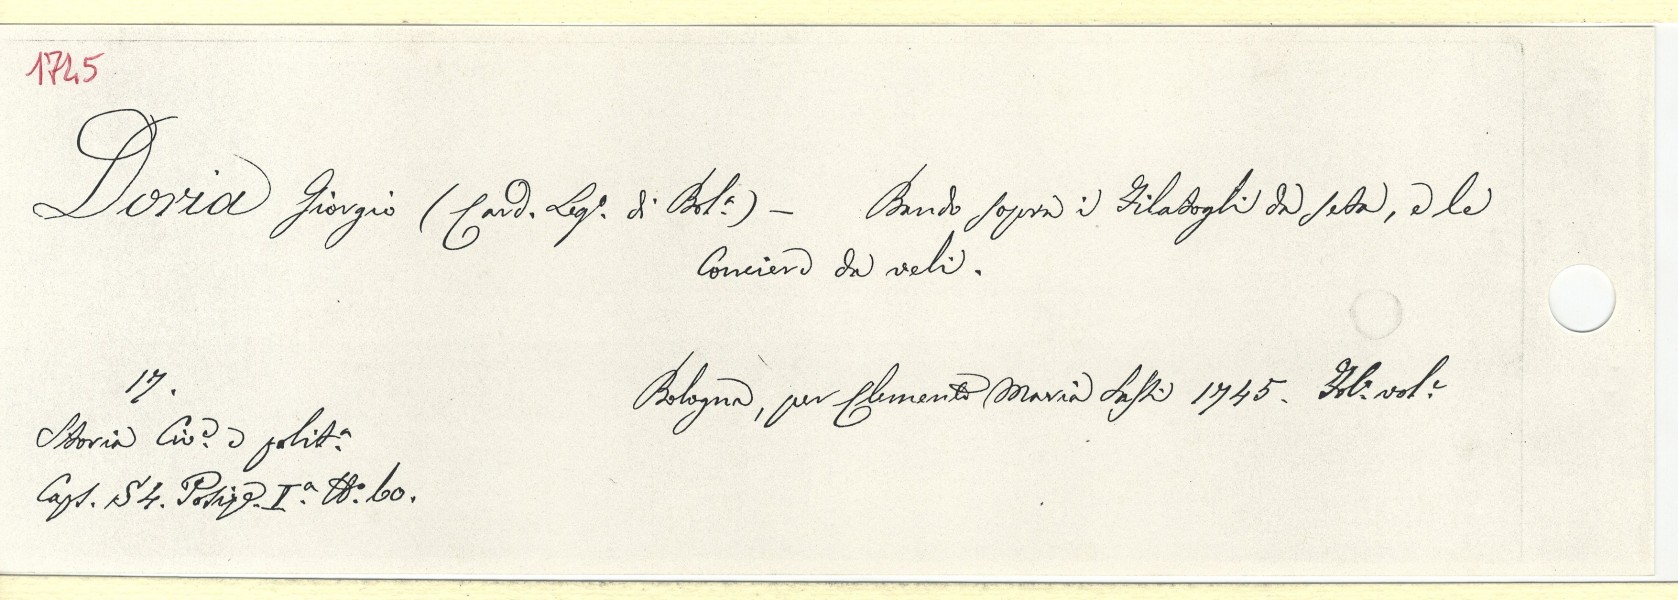 1745
Doria Giorgio (Card. Leg.º di Bol.ª) – Bando sopra i Filatogli da seta, e le
Conciere da veli.
Bologna, per Clemente Maria Sassi 1745. Fol.º vol.e
17.
Storia Civ.e e polit.ª
Caps. S 4. Posiz.e I.ª N.º 60.